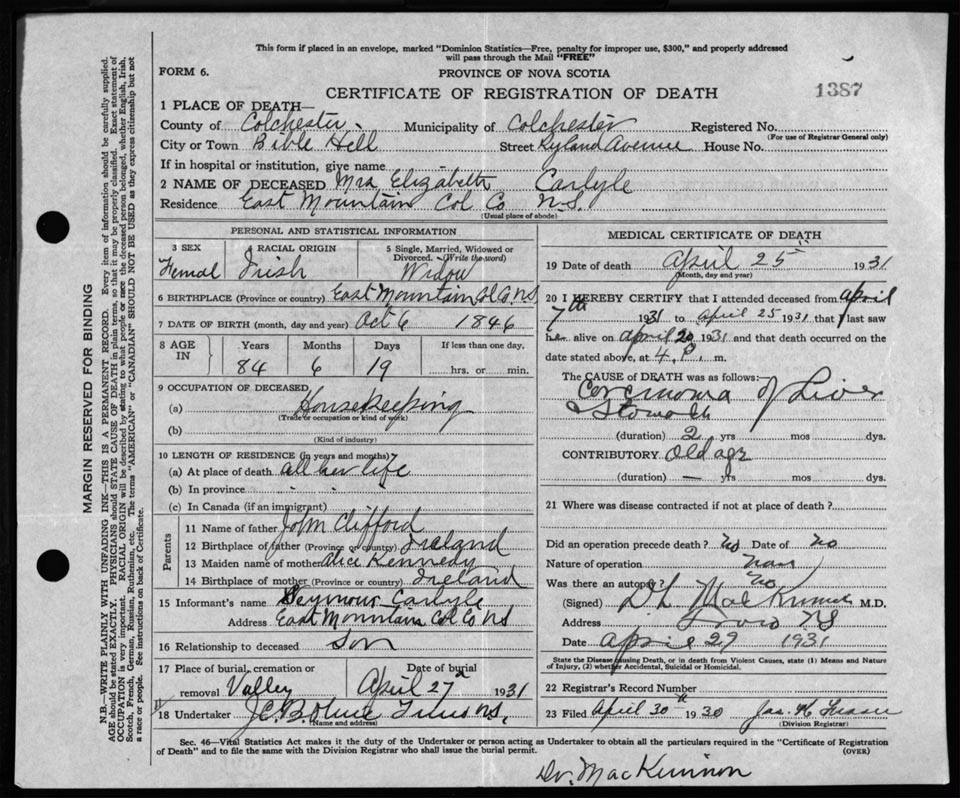 This form if placed in an envelope, marked "Dominion Statistics—Free, penalty for improper use, $300," and properly addressed
will pass through the Mail "FREE"
FORM 6.
PROVINCE OF NOVA SCOTIA
CERTIFICATE OF REGISTRATION OF DEATH
1387
1 PLACE OF DEATH—
County of Colchester Municipality of Colchester Registered No.
(For use of Registrar General only)
City or Town Bible Hell Street Ryland Avenue House No.
If in hospital or institution, give name -
2 NAME OF DECEASED Mrs Elizabeth Carlyle
Residence East Mountain Col Co N.S.
(Usual place of abode)
PERSONAL AND STATISTICAL INFORMATION
3 SEX Femal
4 RACIAL ORIGIN Irish
5 Single, Married, Widowed or Divorced. (Write the word) Widow
6 BIRTHPLACE (Province or country) East Mountain Col Co. N.S.
7 DATE OF BIRTH (month, day and year) Oct 6 1846
8 AGE IN Years Months Days If less than one day,
84 6 19 hrs. or min.
9 OCCUPATION OF DECEASED
(a) Housekeeping
(Trade or occupation or kind of work)
(b)
(Kind of industry)
10 LENGTH OF RESIDENCE (in years and months)
(a) At place of death all her life
(b) In province
(c) In Canada (if an immigrant)
Parents
11 Name of father John Clifford
12 Birthplace of father (Province or country) Ireland
13 Maiden name of mother Alice Kennedy
14 Birthplace of mother (Province or country) Ireland
15 Informant's name Seymour Carlyle
Address East Mountain Col Co NS
16 Relationship to deceased Son
17 Place of burial, cremation or removal Valley
Date of burial April 27 1931
18 Undertaker J.C.B. N.S.
(Name and address)
MEDICAL CERTIFICATE OF DEATH
19 Date of death April 25 1931
(Month, day and year)
20 I HEREBY CERTIFY that I attended deceased from April
7th 1931 to April 25 1931 that I last saw
her alive on April 20 1931 and that death occurred on the
date stated above, at 4. P. m.
The CAUSE OF DEATH was as follows:
Carcinoma of Liver
& Stomach
(duration) 2 yrs mos dys.
CONTRIBUTORY Old age
(duration) — yrs mos dys.
21 Where was disease contracted if not at place of death?
Did an operation precede death? No Date of No
Nature of operation
Was there an autopsy? No
(Signed) D L MacKinnon M.D.
Address Truro NS
Date April 27 1931
State the Disease Causing Death, or in death from Violent Causes, state (1) Means and Nature
of Injury, (2) whether Accidental, Suicidal or Homicidal.
22 Registrar's Record Number
23 Filed April 30th 1930 Jas. K. Fraser
(Division Registrar)
Sec. 46—Vital Statistics Act makes it the duty of the Undertaker or person acting as Undertaker to obtain all the particulars required in the "Certificate of Registration
of Death" and to file the same with the Division Registrar who shall issue the burial permit. (OVER)
Dr. MacKinnon
MARGIN RESERVED FOR BINDING
N.B.—WRITE PLAINLY WITH UNFADING INK—THIS IS A PERMANENT RECORD. Every item of information should be carefully supplied.
AGE should be stated EXACTLY. PHYSICIANS should STATE CAUSE OF DEATH in plain terms, so that it may be properly classified. Exact statement of
OCCUPATION is very important. RACIAL ORIGIN will be described by stating to what people or race the deceased person belonged, whether English, Irish,
Scotch, French, German, Russian, Ruthenian, etc. The terms "AMERICAN" or "CANADIAN" SHOULD NOT BE USED as they express citizenship but not
a race or people. See instructions on back of Certificate.